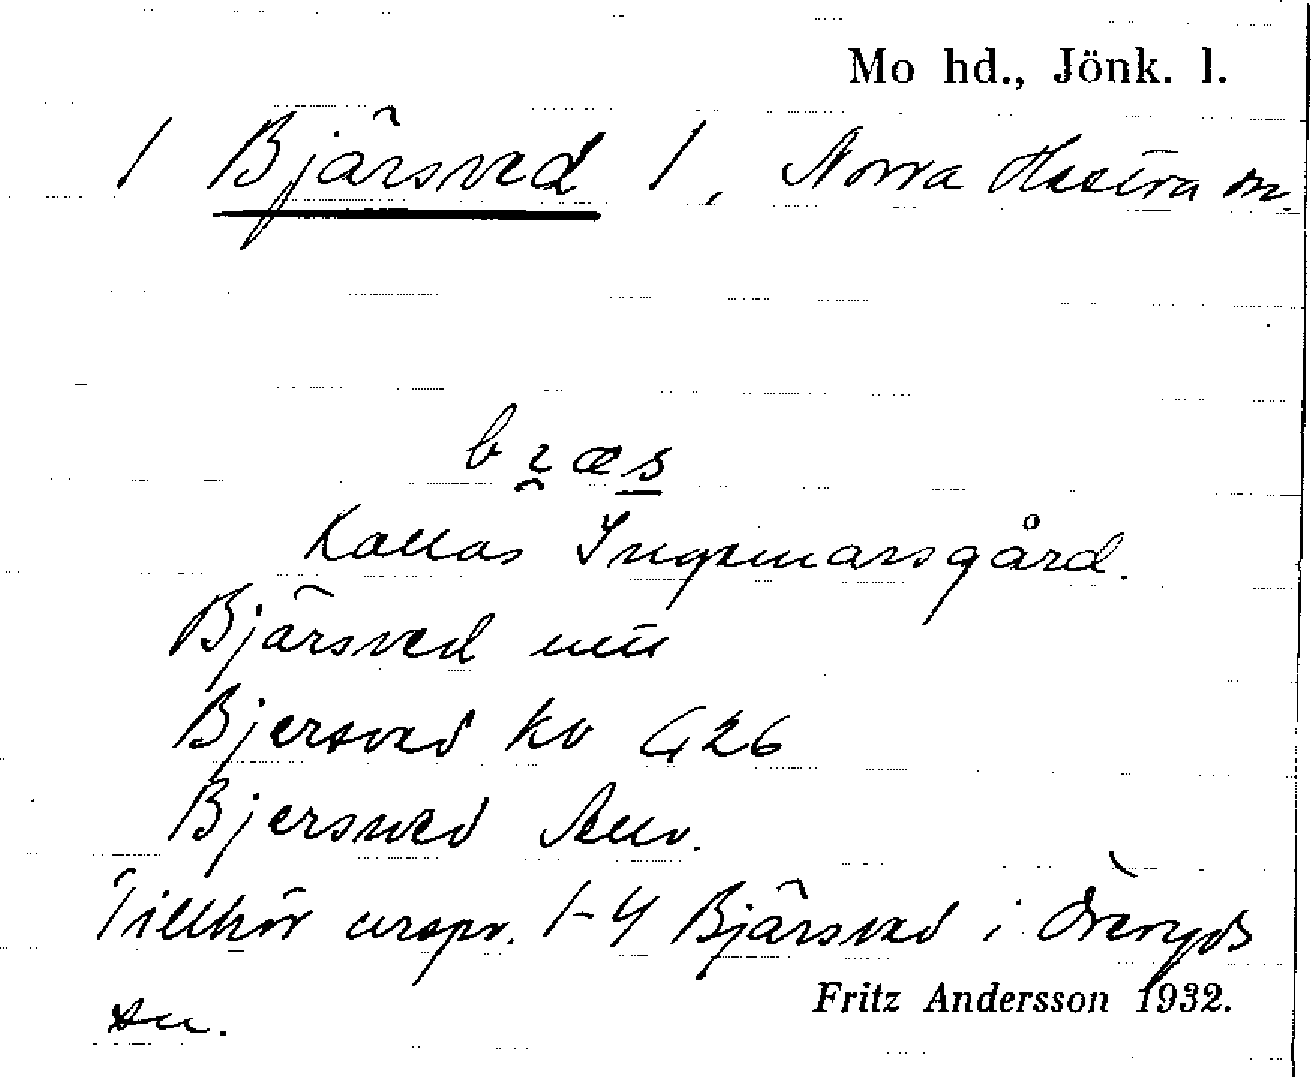 Mo hd., Jönk. l.
1 Bjärsved 1, Norra Hestra sn.
bɿæs
Kallas Ingemarsgård.
Bjärsved
Bjersved kv G, 26
Bjersved
Tillhör urspr. 1-4 Bjärsved i Öreryds
sn.
Fritz Andersson 1932.